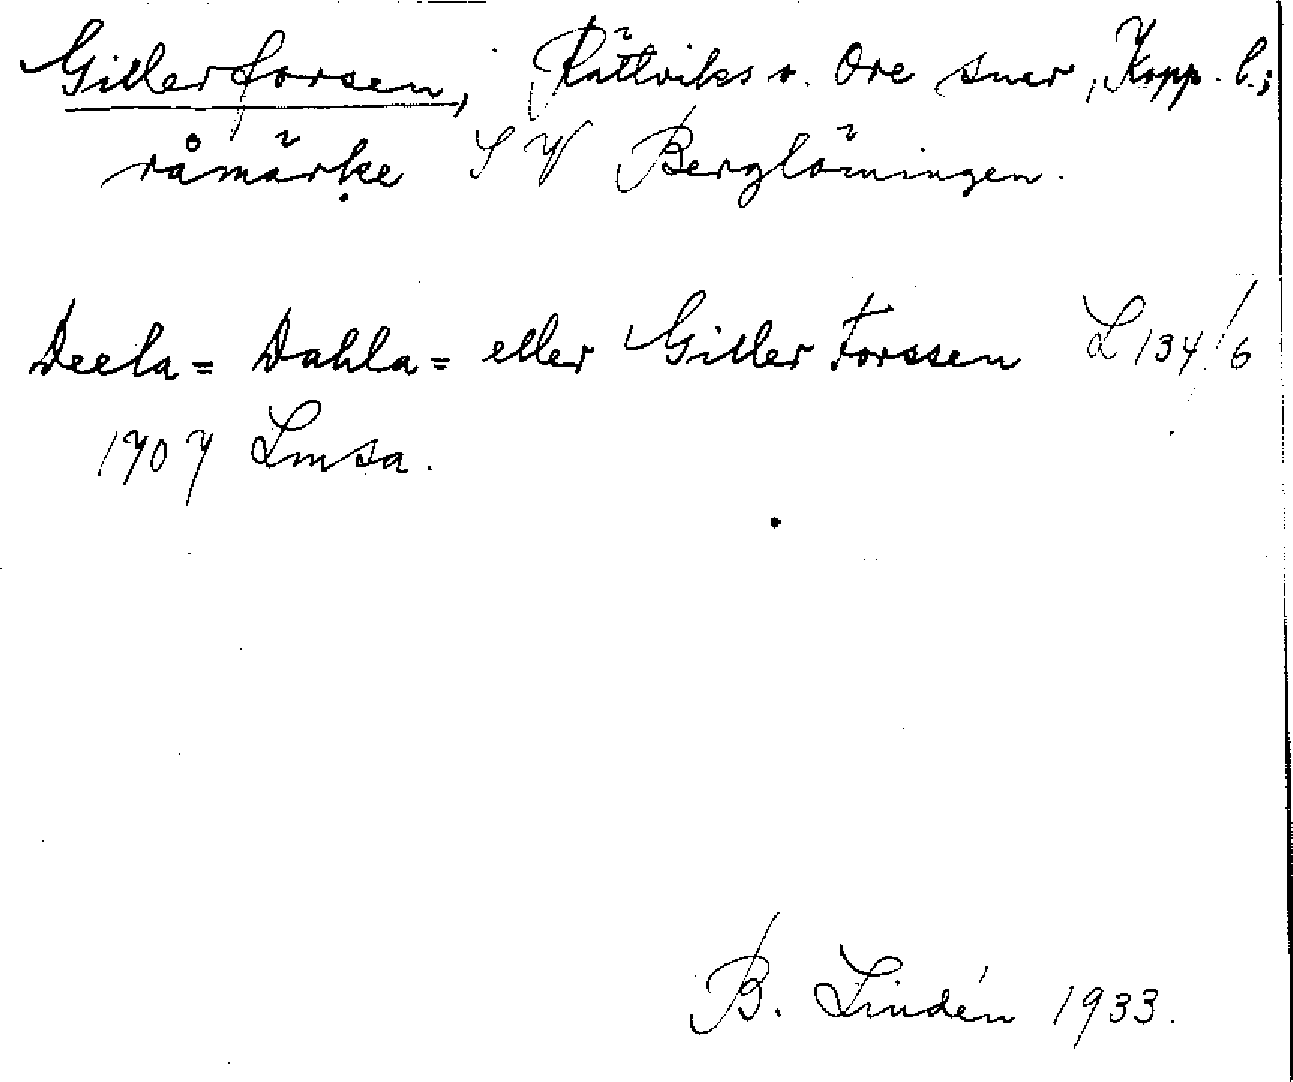 Gillerforsen, Rättviks o. Ore snar, Kopp. l.;
råmärke SV Berglöningen.
Deela= Dahla= eller Giller Forssen L 134/6
1707 Lmsa.
B. Lindén 1933.